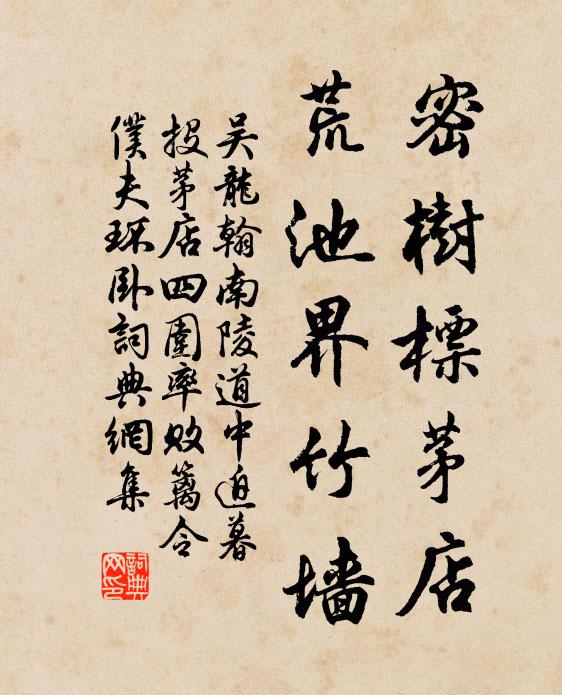 密樹標茅店
荒池界竹墻
吴龍翰南陵道中迫暮
投茅店四圍率敗籬令
僕夫环卧詞典網集
詞典
网印